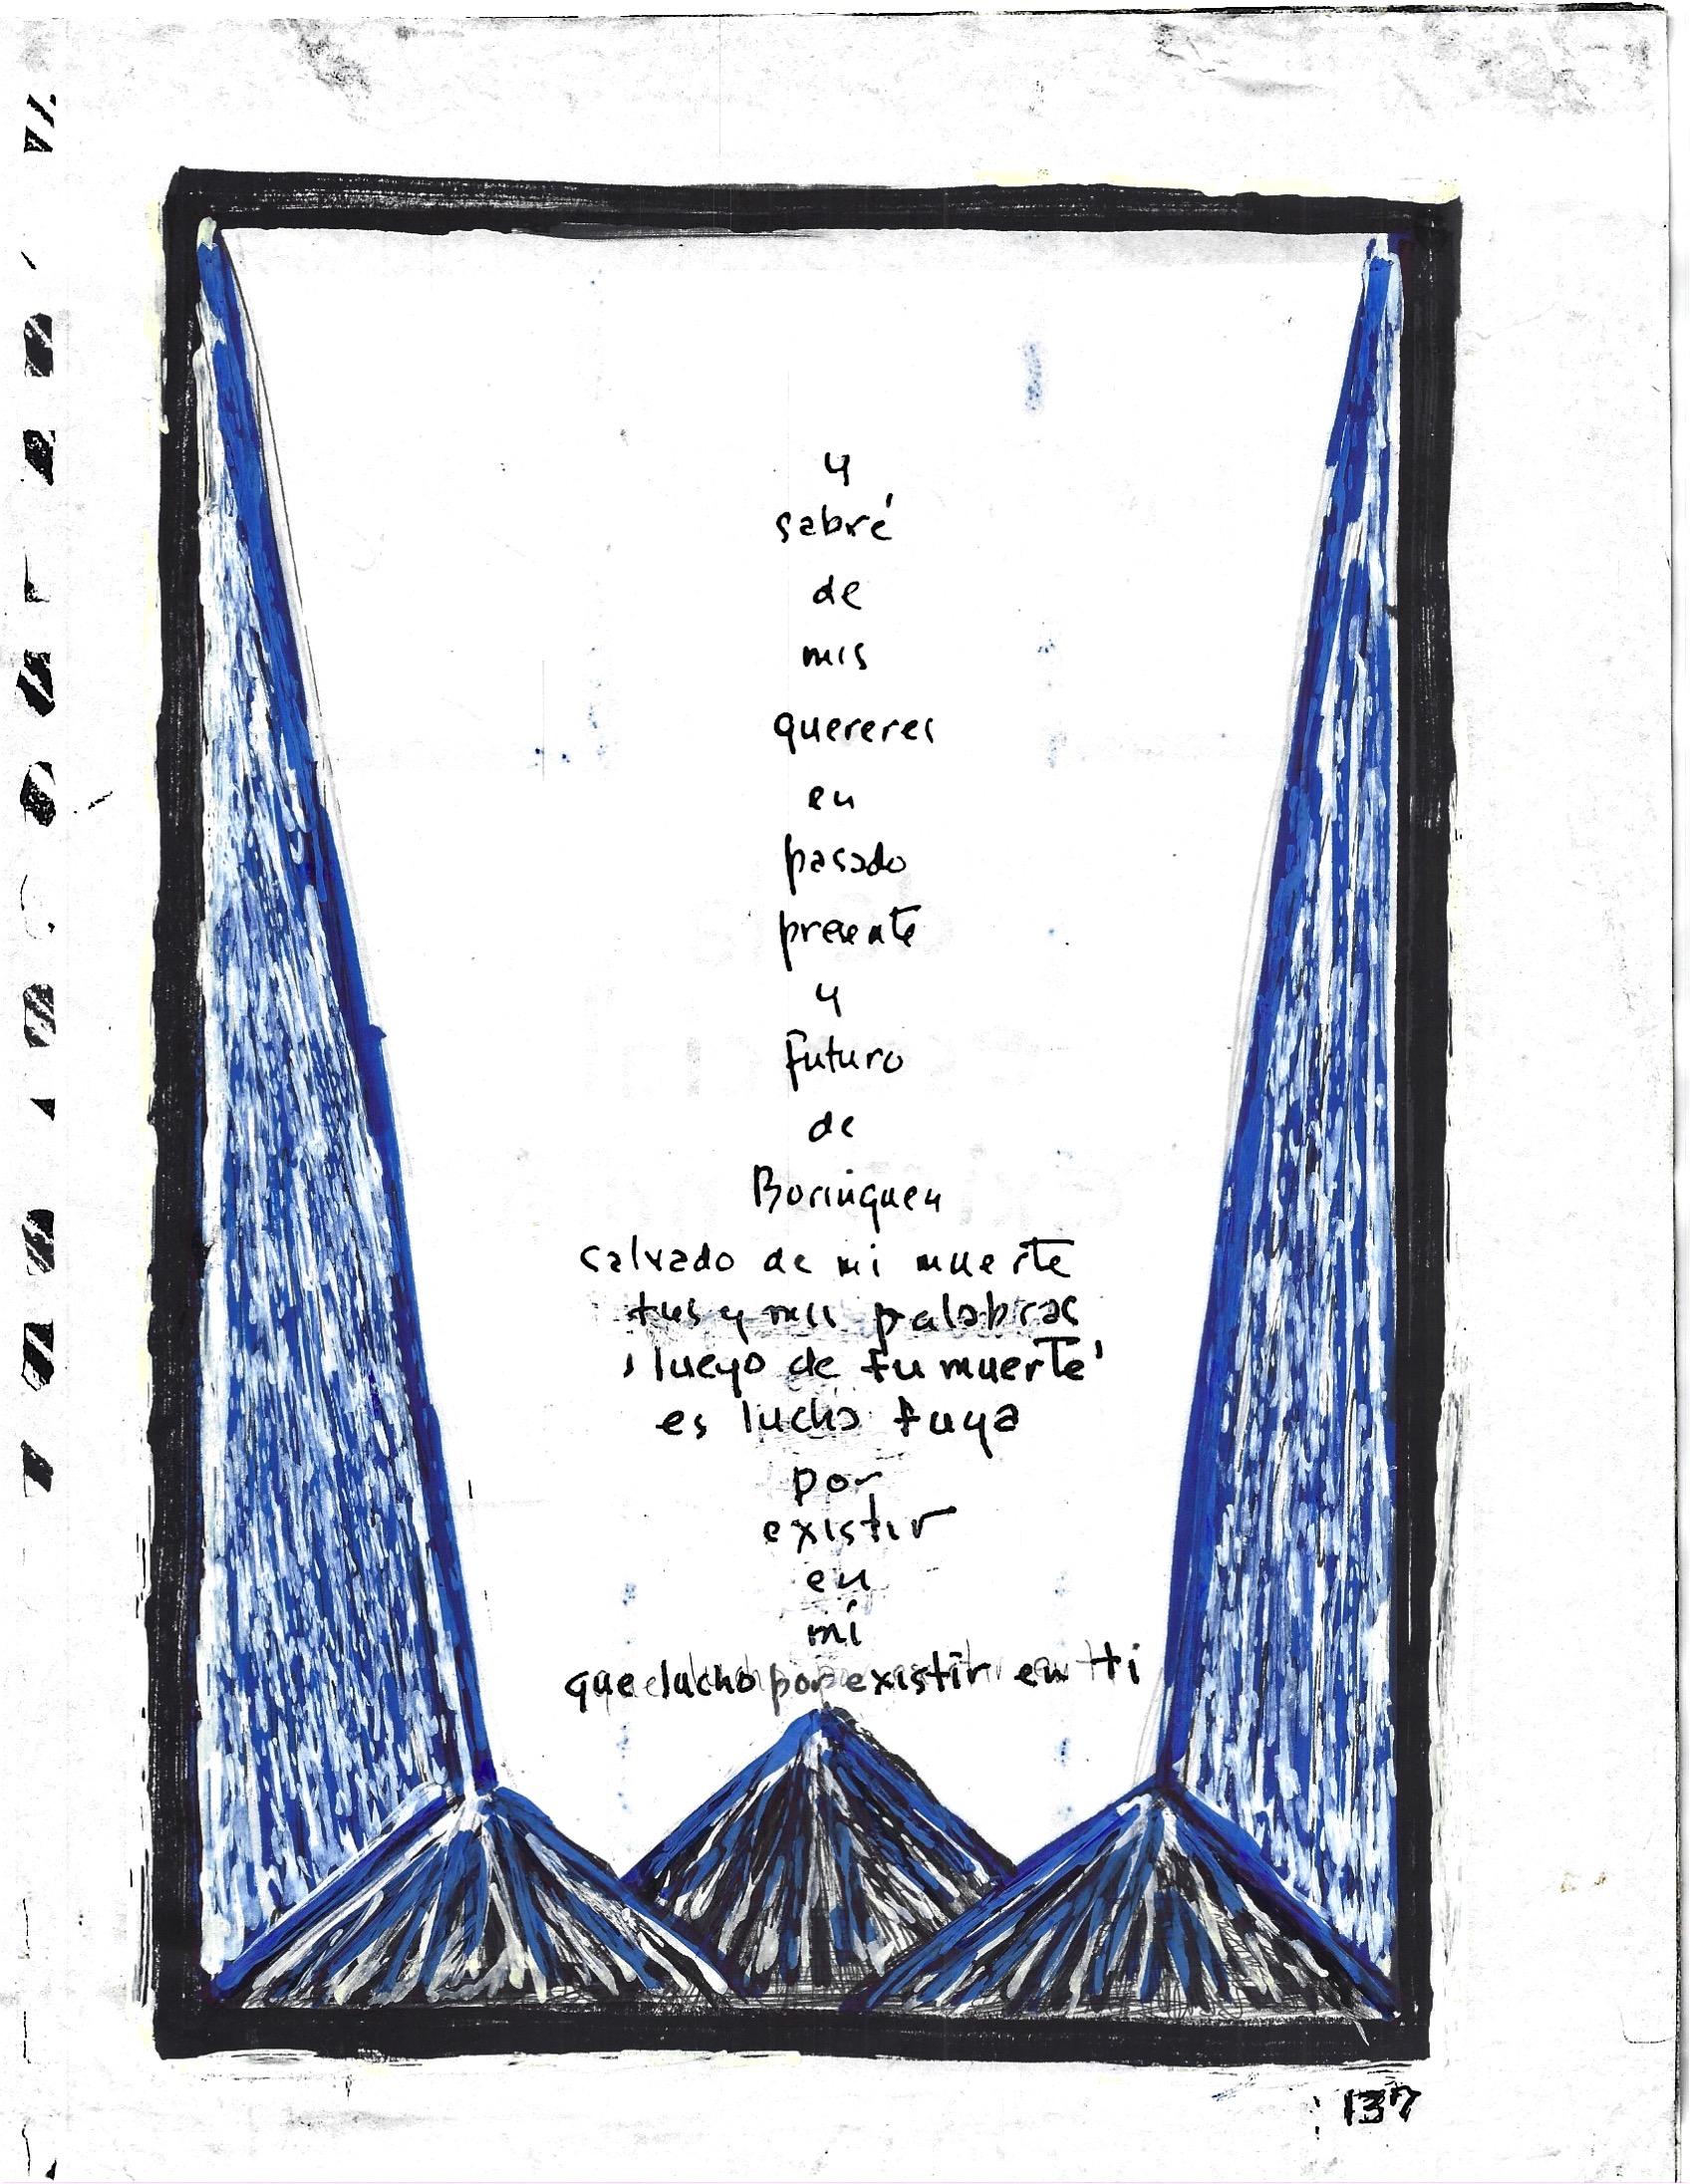 y
sabré
de
mis
quereres
en
pasado
presente
y
futuro
de
Borinquen
salvado de mi muerte
tus y mis palabras
luego de tu muerte
es lucha tuya
por
existir
en
mí
que lucho por existir en ti
137